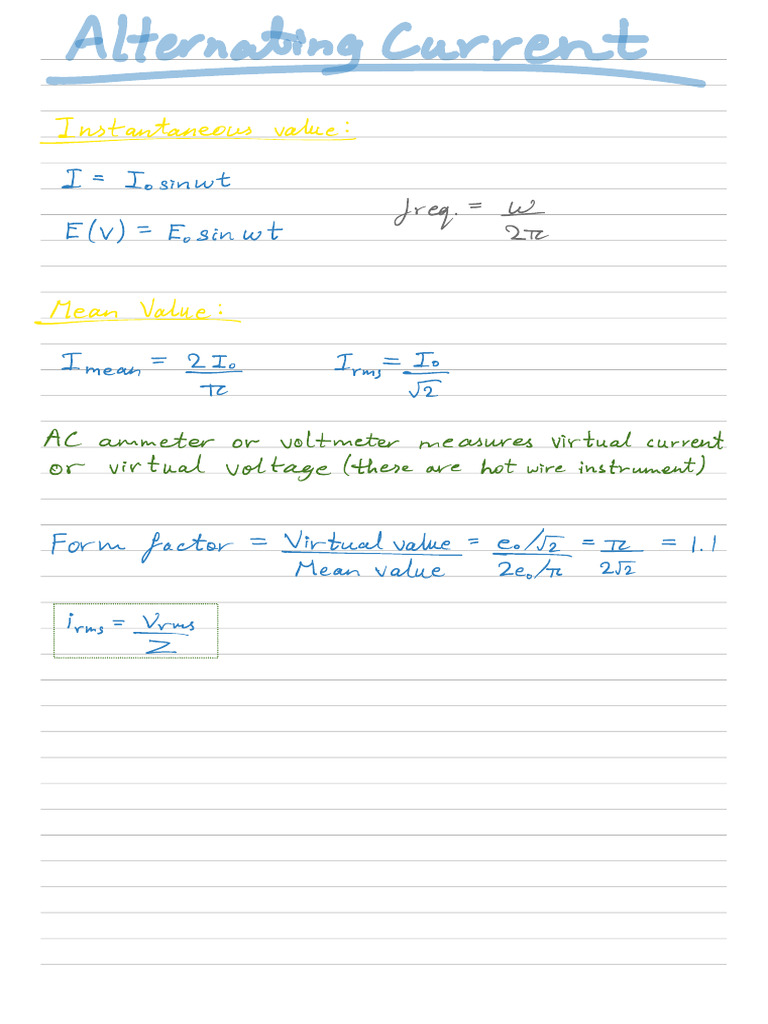 Alternating Current
Instantaneous value:
I = I₀ sinwt
freq. = w/2π
E(v) = E₀ sin wt
Mean Value:
I mean = 2I₀/π    I rms = I₀/√2
AC ammeter or voltmeter measures virtual current
or virtual voltage (these are hot wire instrument)
Form factor = Virtual value/Mean value = e₀/√2/2e₀/π = π/2√2 = 1.1
i rms = Vrms/Z